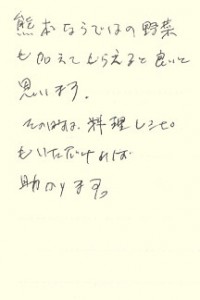 熊本ならではの野菜
も加えてもらえると良いと
思います。
その時は、料理レシピ
もいただければ
助かります。